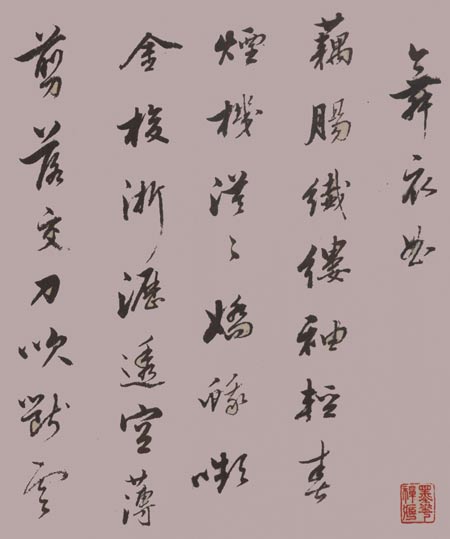 舞衣曲
藕腸纖縷袖輕春
煙機漠〻嬌蛾嚬
金梭淅瀝透空薄
剪落交刀吹斷雲